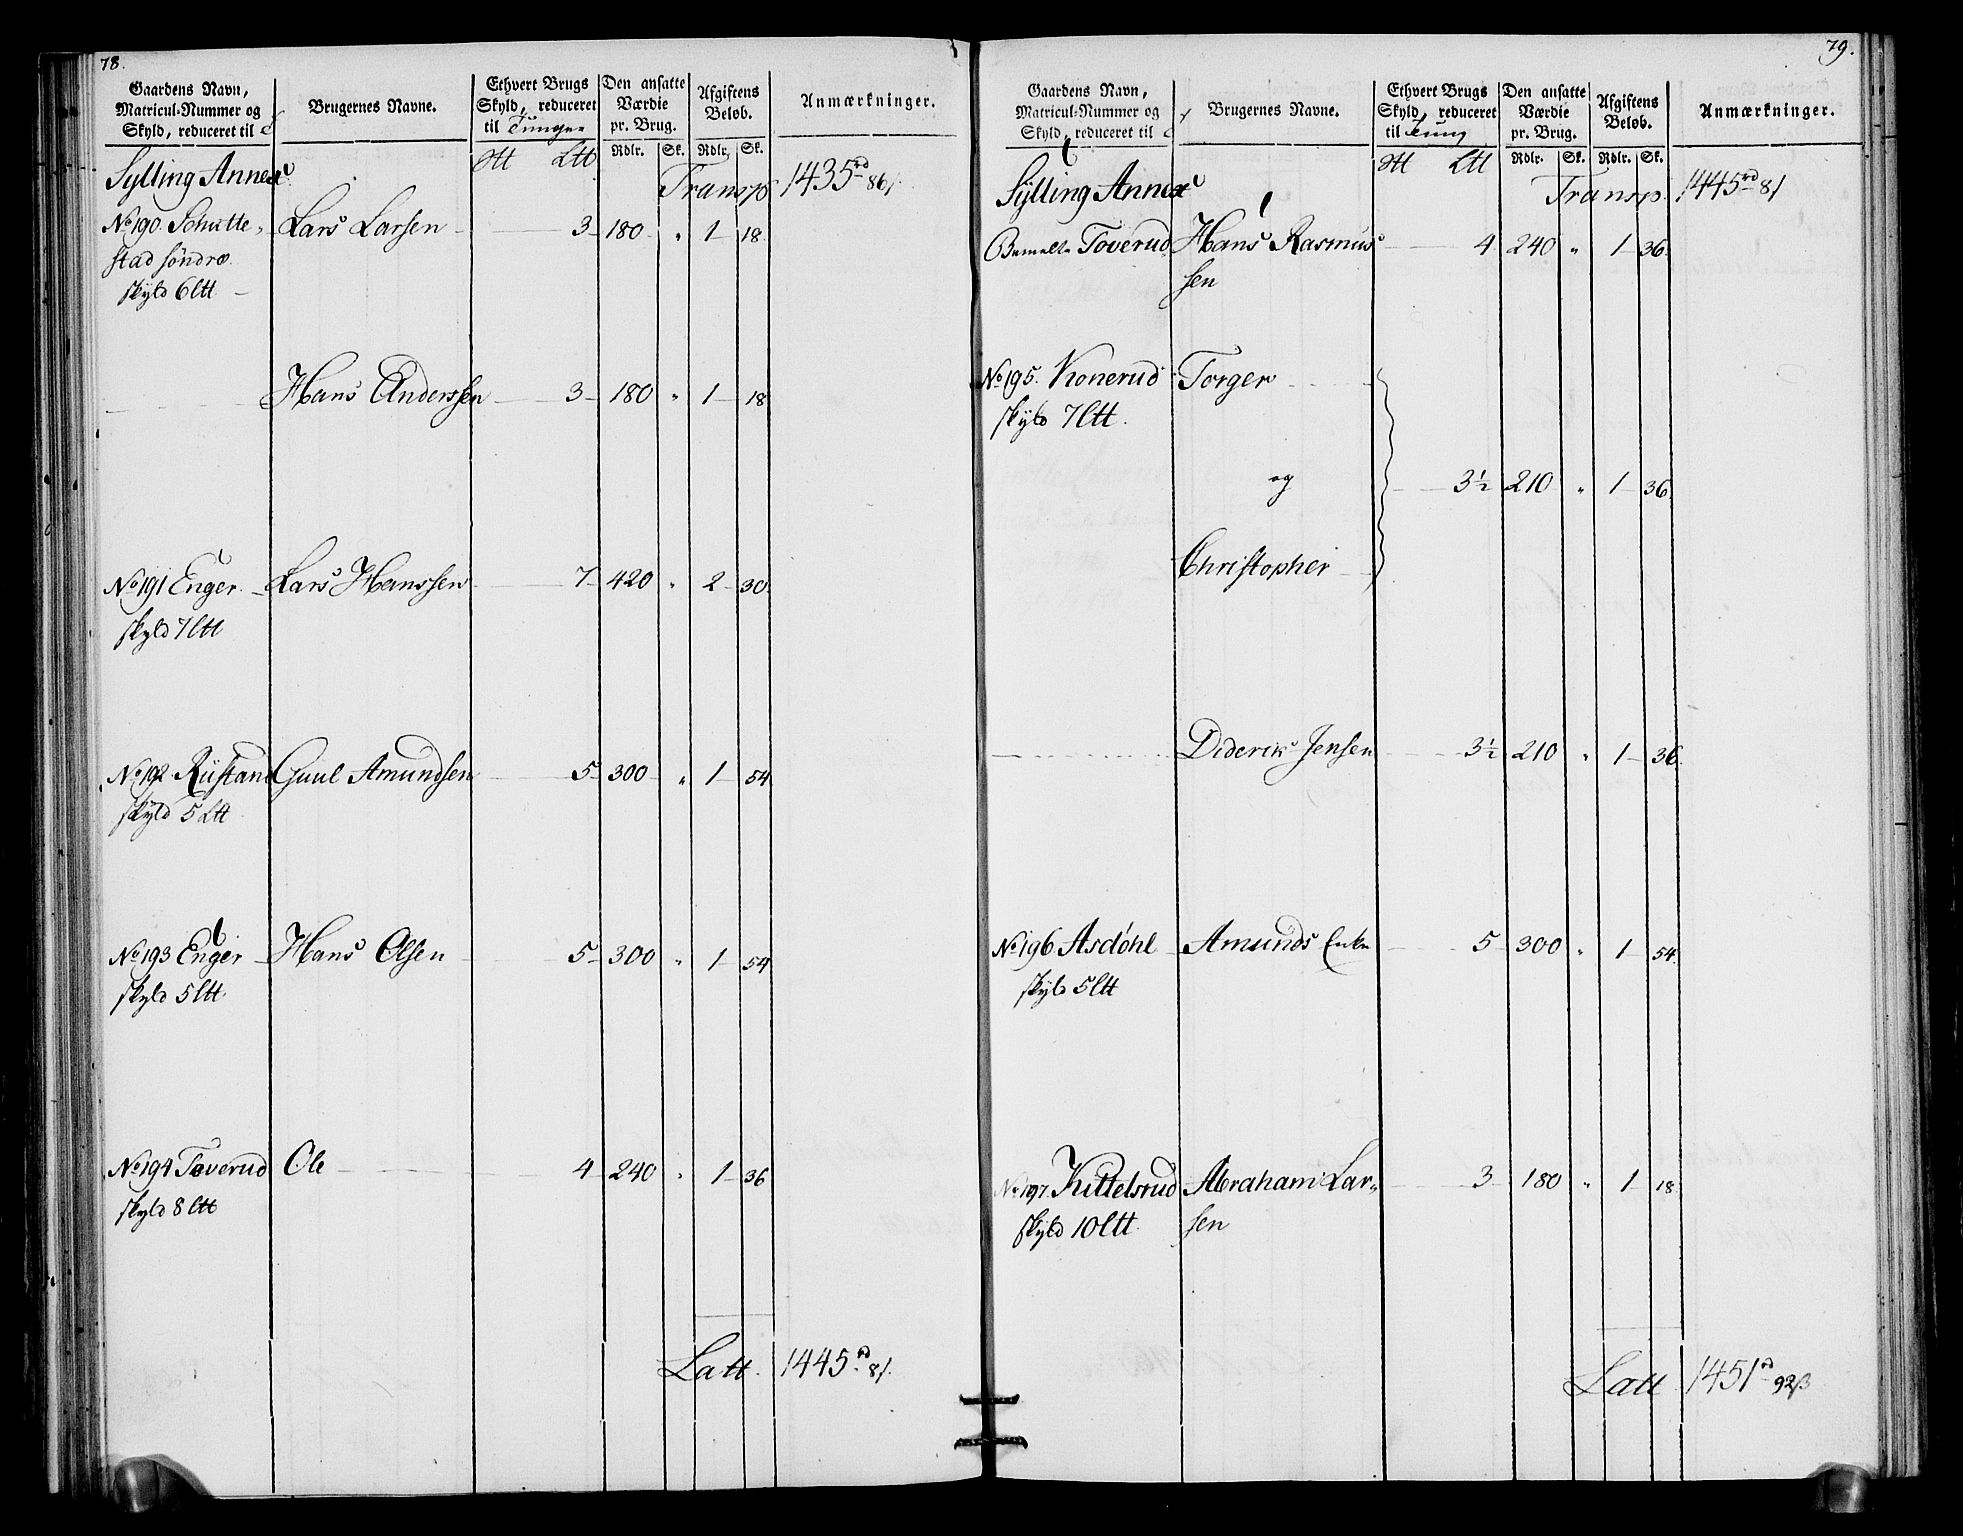 78.
Gaardens Navn,
Matricul-Nummer og
Skyld, reduceret til
Brugernes Navne.
Ethvert Brugs
Skyld, reduceret
til Tunger
Den ansatte
Værdie
pr. Brug.
Afgiftens
Beløb.
Anmærkninger.
Rdlr. Sk. Rdlr. Sk.
Sylling Annex
Ltt
Transp 1435 rd 86/.
No 190. Schutte-
Lars Larsen 3 180 " 1 18
stad søndre
skyld 6 Ltt
Hans Anderssen 3 180 " 1 18
No 191 Enger Lars Hanssen 7 420 " 2 30
skyld 7 Ltt
No 192 Rustand Guul Amundsen 5 300 " 1 54
skyld 5 Ltt
No 193 Enger Hans Olsen 5 300 " 1 54
skyld 5 Ltt
No 194 Toverud Ole 4 240 " 1 36
skyld 8 Ltt
Latt. 1445 rd 8/.
79.
Gaardens Navn,
Matricul-Nummer og
Skyld, reduceret til
Brugernes Navne.
Ethvert Brugs
Skyld, reduceret
til Tung
Den ansatte
Værdie
pr. Brug.
Afgiftens
Beløb.
Anmærkninger.
Rdlr. Sk. Rdlr. Sk.
Sylling Annex
Ltt
Transp. 1445 rd 8/
Bemelte Toverud Hans Rasmus 4 240 " 1 36
sen
No 195. Konerud Torger
skyld 7 Ltt.
og 3½ 210 " 1 36
Christopher
Diderik Jensen 3½ 210 " 1 36
No 196 Asdøhl Amunds Enke 5 300 " 1 54
skyld 5 Ltt
No 197. Kittelsrud Abraham Lar- 3 180 " 1 18
skyld 10 Ltt sen
Latt 1451 rd 92ß